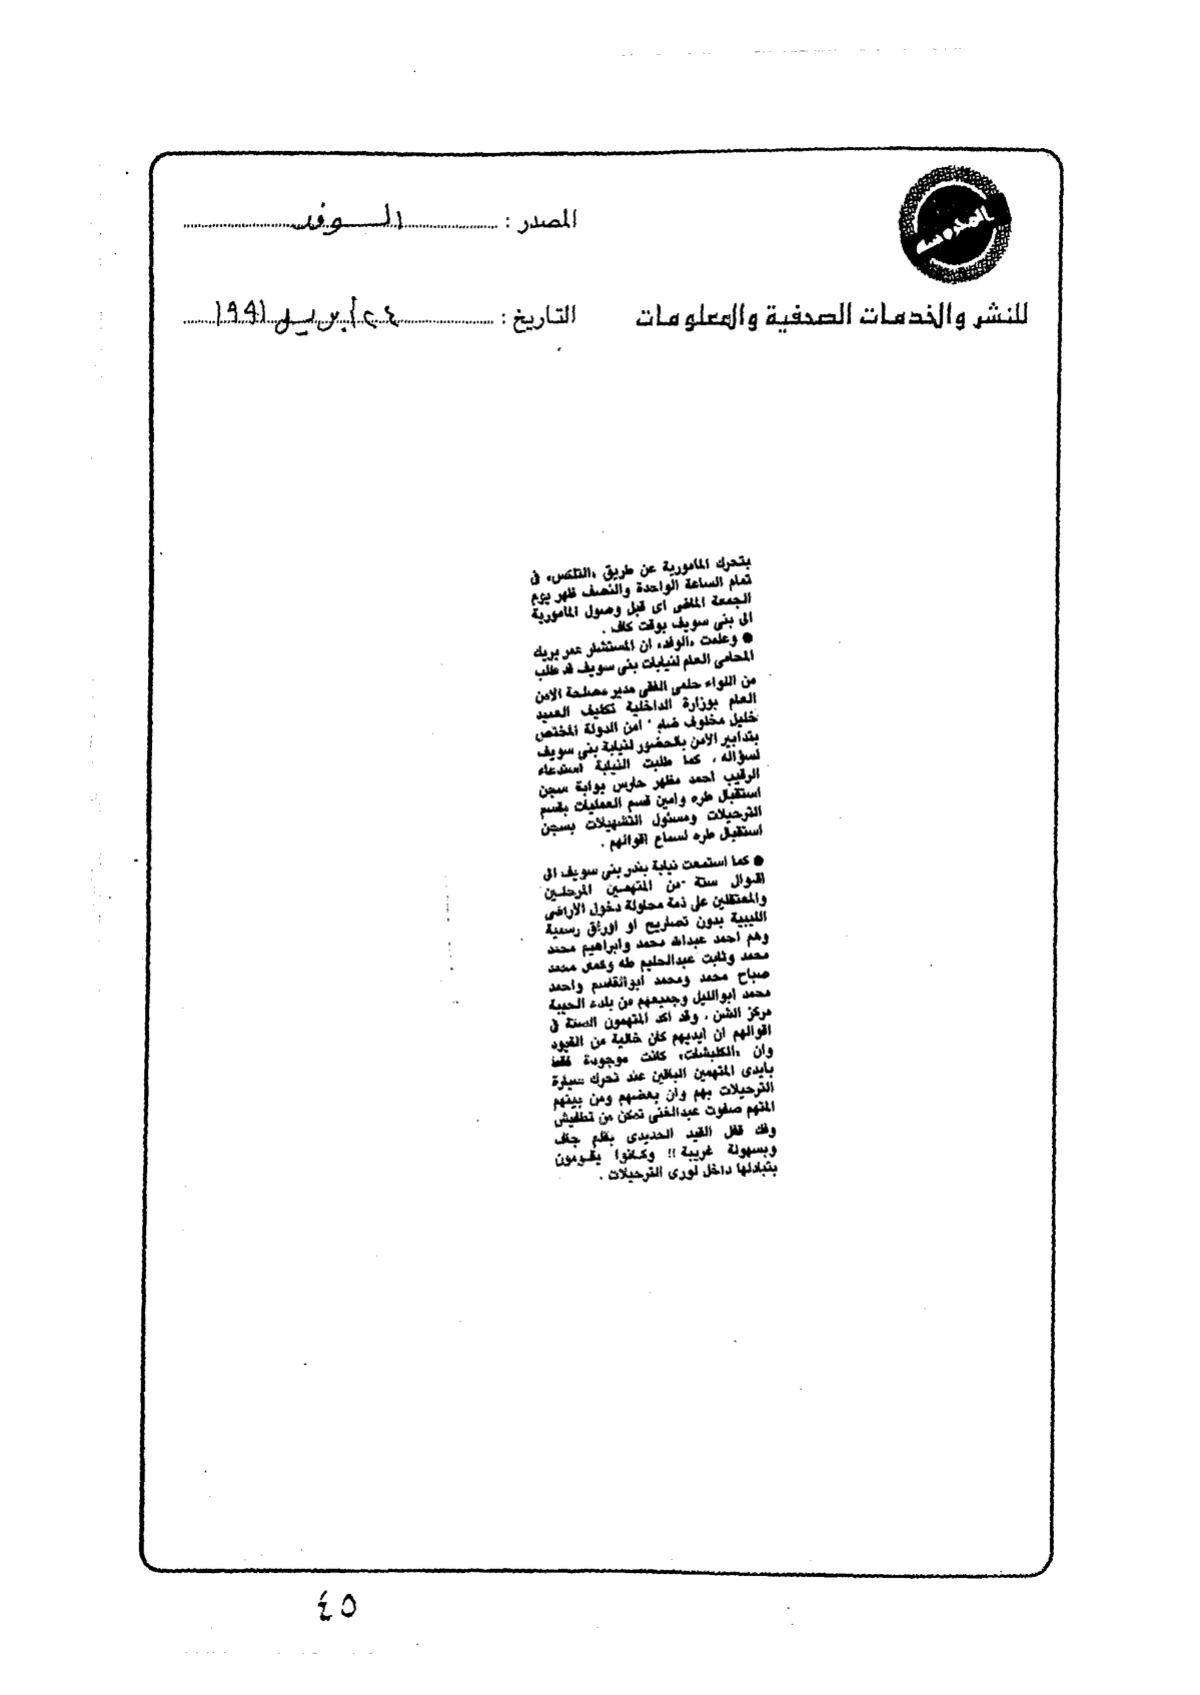 المحروسة
للنشر والخدمات الصحفية والمعلومات
المصدر : الوفد
التاريخ : ٢٤ أبريل ١٩٩١
بتحرك المأمورية عن طريق «التلكس» فى
تمام الساعة الواحدة والنصف ظهر يوم
الجمعة الماضى اى قبل وصول المأمورية
الى بنى سويف بوقت كاف .
● وعلمت «الوفد» ان المستشار عمر بريك
المحامى العام لنيابات بنى سويف قد طلب
من اللواء حلمى الفقى مدير مصلحة الامن
العام بوزارة الداخلية تكليف العميد
خليل مخلوف امن الدولة المختص
بتدابير الامن بالحضور لنيابة بنى سويف
لسؤاله ، كما طلبت النيابة استدعاء
الرقيب احمد مظهر حارس بوابة سجن
استقبال طره وامين قسم العمليات بقسم
الترحيلات ومسئول التشهيلات بسجن
استقبال طره لسماع اقوالهم .
● كما استمعت نيابة بندر بنى سويف الى
اقوال ستة من المتهمين المرحلين
والمعتقلين على ذمة محاولة دخول الأراضى
الليبية بدون تصاريح او اوراق رسمية
وهم احمد عبدالله محمد وابراهيم محمد
محمد وثابت عبدالحليم طه وكمال محمد
صباح محمد ومحمد ابوالقاسم واحمد
محمد ابوالليل وجميعهم من بلدة الحيبة
مركز الفشن ، وقد اكد المتهمون الستة فى
اقوالهم ان ايديهم كان خالية من القيود
وان «الكلبشات» كانت موجودة فقط
بأيدى المتهمين الباقين عند تحرك سيارة
الترحيلات بهم وان بعضهم ومن بينهم
المتهم صفوت عبدالغنى تمكن من تطفيش
وفك قفل القيد الحديدى بقلم جاف
وبسهولة غريبة !! وكانوا يقومون
بتبادلها داخل لورى الترحيلات .
٤٥